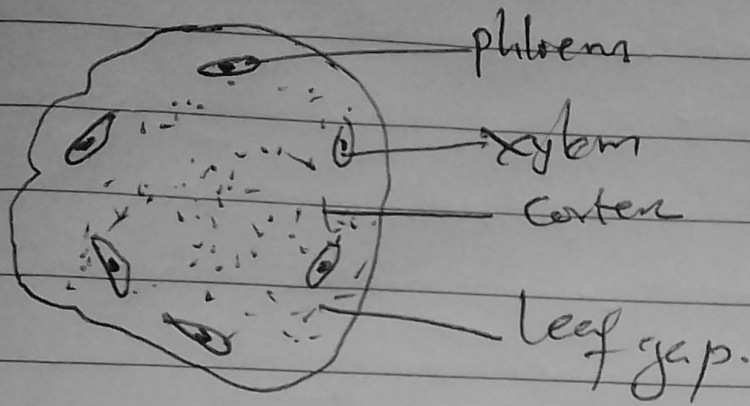 phloem
xylem
Cortex
leaf gap.